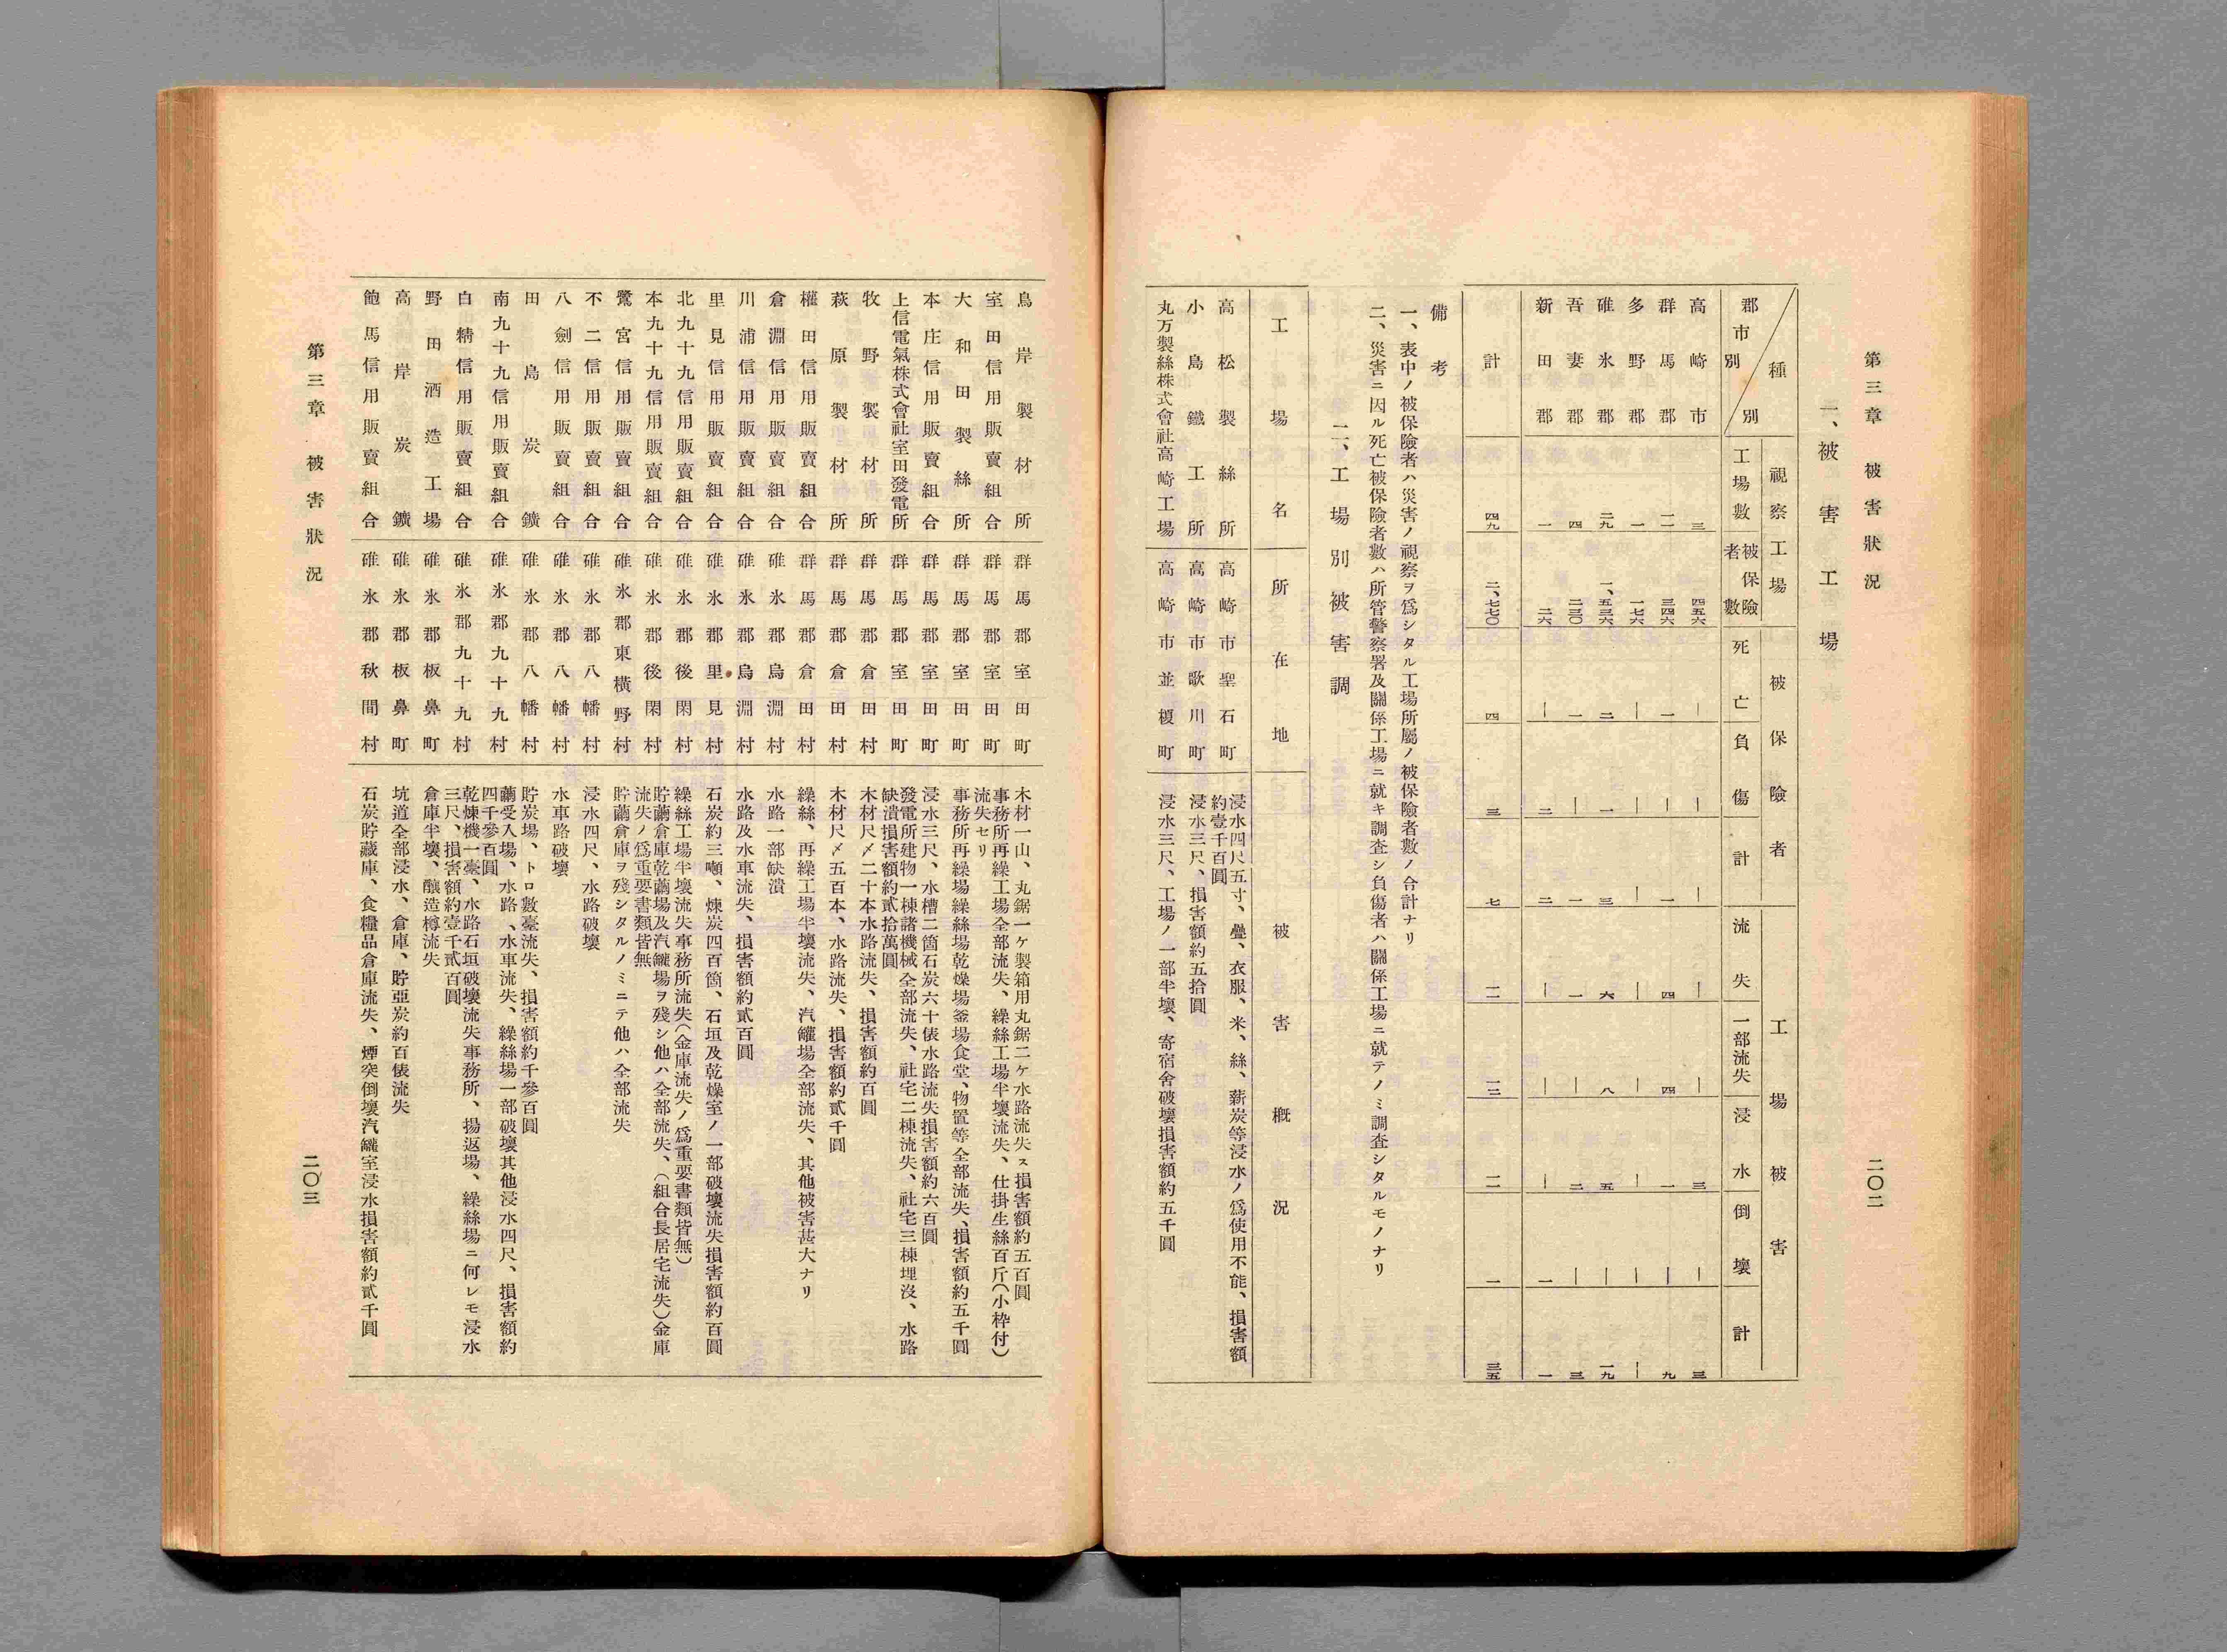 第三章 被害狀況
二〇二
一、被害工場
種別
郡市別
視察工場
工場數
被保險者數
被保險者
死亡
負傷
計
工場被害
流失
一部流失
浸水
倒壞
計
高崎市 三 四五六 ― ― ― ― ― 三 ― 三
群馬郡 一一 三四六 一 ― 一 四 四 一 ― 九
多野郡 一 一七六 ― ― ― ― ― ― ― ―
碓氷郡 二九 一、五三六 二 一 三 六 八 五 ― 一九
吾妻郡 四 二三〇 一 ― 一 一 ― 二 ― 三
新田郡 一 二六 ― 二 二 ― ― ― 一 一
計 四九 二、七七〇 四 三 七 一一 一二 一一 一 三五
備考
一、表中ノ被保險者ハ災害ノ視察ヲ爲シタル工場所屬ノ被保險者數ノ合計ナリ
二、災害ニ因ル死亡被保險者數ハ所管警察署及關係工場ニ就キ調査シ負傷者ハ關係工場ニ就テノミ調査シタルモノナリ
二、工場別被害調
工場名 所在地 被害概況
高松製絲所 高崎市聖石町 浸水四尺五寸、疊、衣服、米、絲、薪炭等浸水ノ爲使用不能、損害額
約壹千百圓
小島鐵工所 高崎市歌川町 浸水三尺、損害額約五拾圓
丸万製絲株式會社高崎工場 高崎市並榎町 浸水三尺、工場ノ一部半壞、寄宿舍破壞損害額約五千圓
烏岸製材所 群馬郡室田町 木材一山、丸鋸一ケ製箱用丸鋸二ケ水路流失ス損害額約五百圓
室田信用販賣組合 群馬郡室田町 事務所再繰工場全部流失、繰絲工場半壞流失、仕掛生絲百斤(小枠付)
流失セリ
大和田製絲所 群馬郡室田町 事務所再繰場繰絲場乾燥場釜場食堂、物置等全部流失、損害額約五千圓
本庄信用販賣組合 群馬郡室田町 浸水三尺、水槽二箇石炭六十俵水路流失損害額約六百圓
上信電氣株式會社室田發電所 群馬郡室田町 發電所建物一棟諸機械全部流失、社宅二棟流失、社宅三棟埋沒、水路
缺潰損害額約貳拾萬圓
牧野製材所 群馬郡倉田村 木材尺〆二十本水路流失、損害額約百圓
萩原製材所 群馬郡倉田村 木材尺〆五百本、水路流失、損害額約貳千圓
權田信用販賣組合 群馬郡倉田村 繰絲、再繰工場半壞流失、汽罐場全部流失、其他被害甚大ナリ
倉淵信用販賣組合 碓氷郡烏淵村 水路一部缺潰
川浦信用販賣組合 碓氷郡烏淵村 水路及水車流失、損害額約貳百圓
里見信用販賣組合 碓氷郡里見村 石炭約三噸、煉炭四百箇、石垣及乾燥室ノ一部破壞流失損害額約百圓
北九十九信用販賣組合 碓氷郡後閑村 繰絲工場半壞流失事務所流失(金庫流失ノ爲重要書類皆無)
本九十九信用販賣組合 碓氷郡後閑村 貯繭倉庫乾繭場及汽罐場ヲ殘シ他ハ全部流失、(組合長居宅流失)金庫
流失ノ爲重要書類皆無
鷺宮信用販賣組合 碓氷郡東橫野村 貯繭倉庫ヲ殘シタルノミニテ他ハ全部流失
不二信用販賣組合 碓氷郡八幡村 浸水四尺、水路破壞
八劍信用販賣組合 碓氷郡八幡村 水車路破壞
田島炭鑛 碓氷郡八幡村 貯炭場、トロ數臺流失、損害額約千參百圓
南九十九信用販賣組合 碓氷郡九十九村 繭受入場、水路、水車流失、繰絲場一部破壞其他浸水四尺、損害額約
四千參百圓
白精信用販賣組合 碓氷郡九十九村 乾煉機一臺、水路石垣破壞流失事務所、揚返場、繰絲場ニ何レモ浸水
三尺、損害額約壹千貳百圓
野田酒造工場 碓氷郡板鼻町 倉庫半壞、釀造樽流失
高岸炭鑛 碓氷郡板鼻町 坑道全部浸水、倉庫、貯亞炭約百俵流失
飽馬信用販賣組合 碓氷郡秋間村 石炭貯藏庫、食糧品倉庫流失、煙突倒壞汽罐室浸水損害額約貳千圓
第三章 被害狀況
二〇三